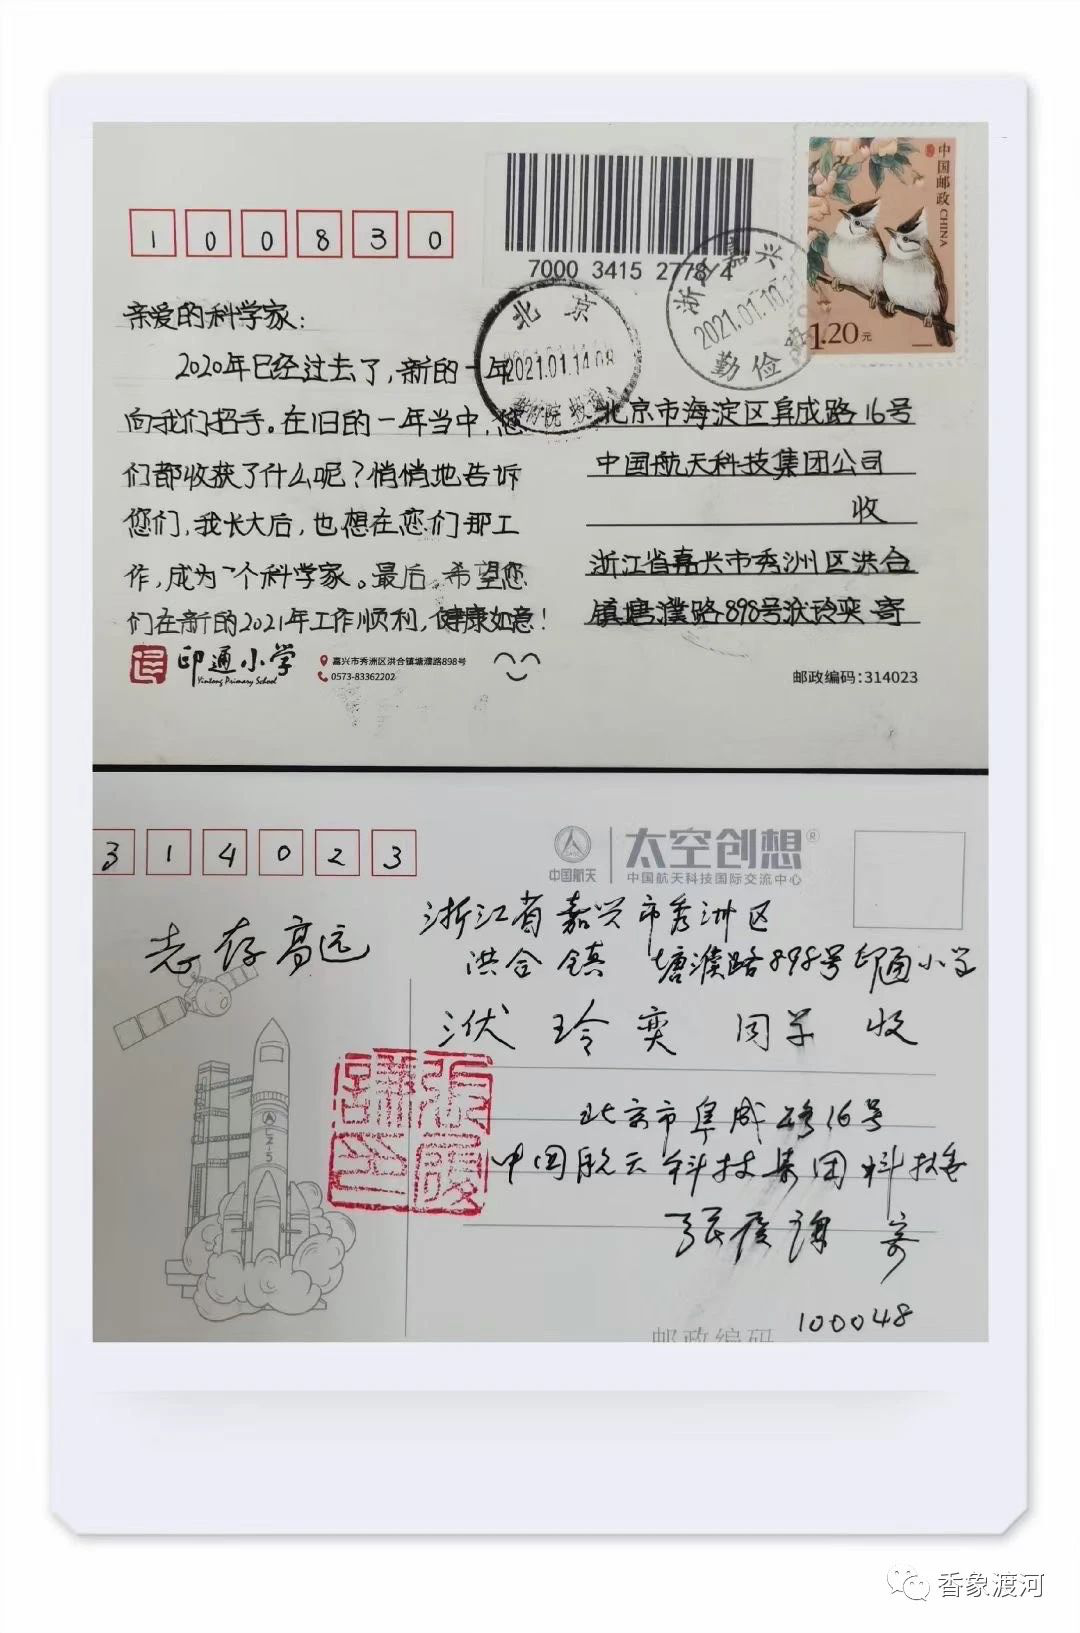 100830
7000 3415 2778 4
中国邮政 CHINA
1.20元
浙江嘉兴
2021.01.10
勤俭
北京
2021.01.14.08
亲爱的科学家：
2020年已经过去了，新的一年
向我们招手。在旧的一年当中，您
们都收获了什么呢？悄悄地告诉
您们，我长大后，也想在您们那工
作，成为一个科学家。最后，希望您
们在新的2021年工作顺利，健康如意！
北京市海淀区阜成路16号
中国航天科技集团公司
收
浙江省嘉兴市秀洲区洪合
镇塘濮路898号洑玲奕 寄
印通小学
Yintong Primary School
嘉兴市秀洲区洪合镇塘濮路898号
0573-83362202
邮政编码：314023
314023
中国航天
太空创想®
中国航天科技国际交流中心
志存高远
浙江省嘉兴市秀洲区
洪合镇 塘濮路898号印通小学
洑玲奕 同学 收
LZ-5
北京市阜成路16号
中国航天科技集团科技委
张履谦 寄
100048
邮政编码
香象渡河